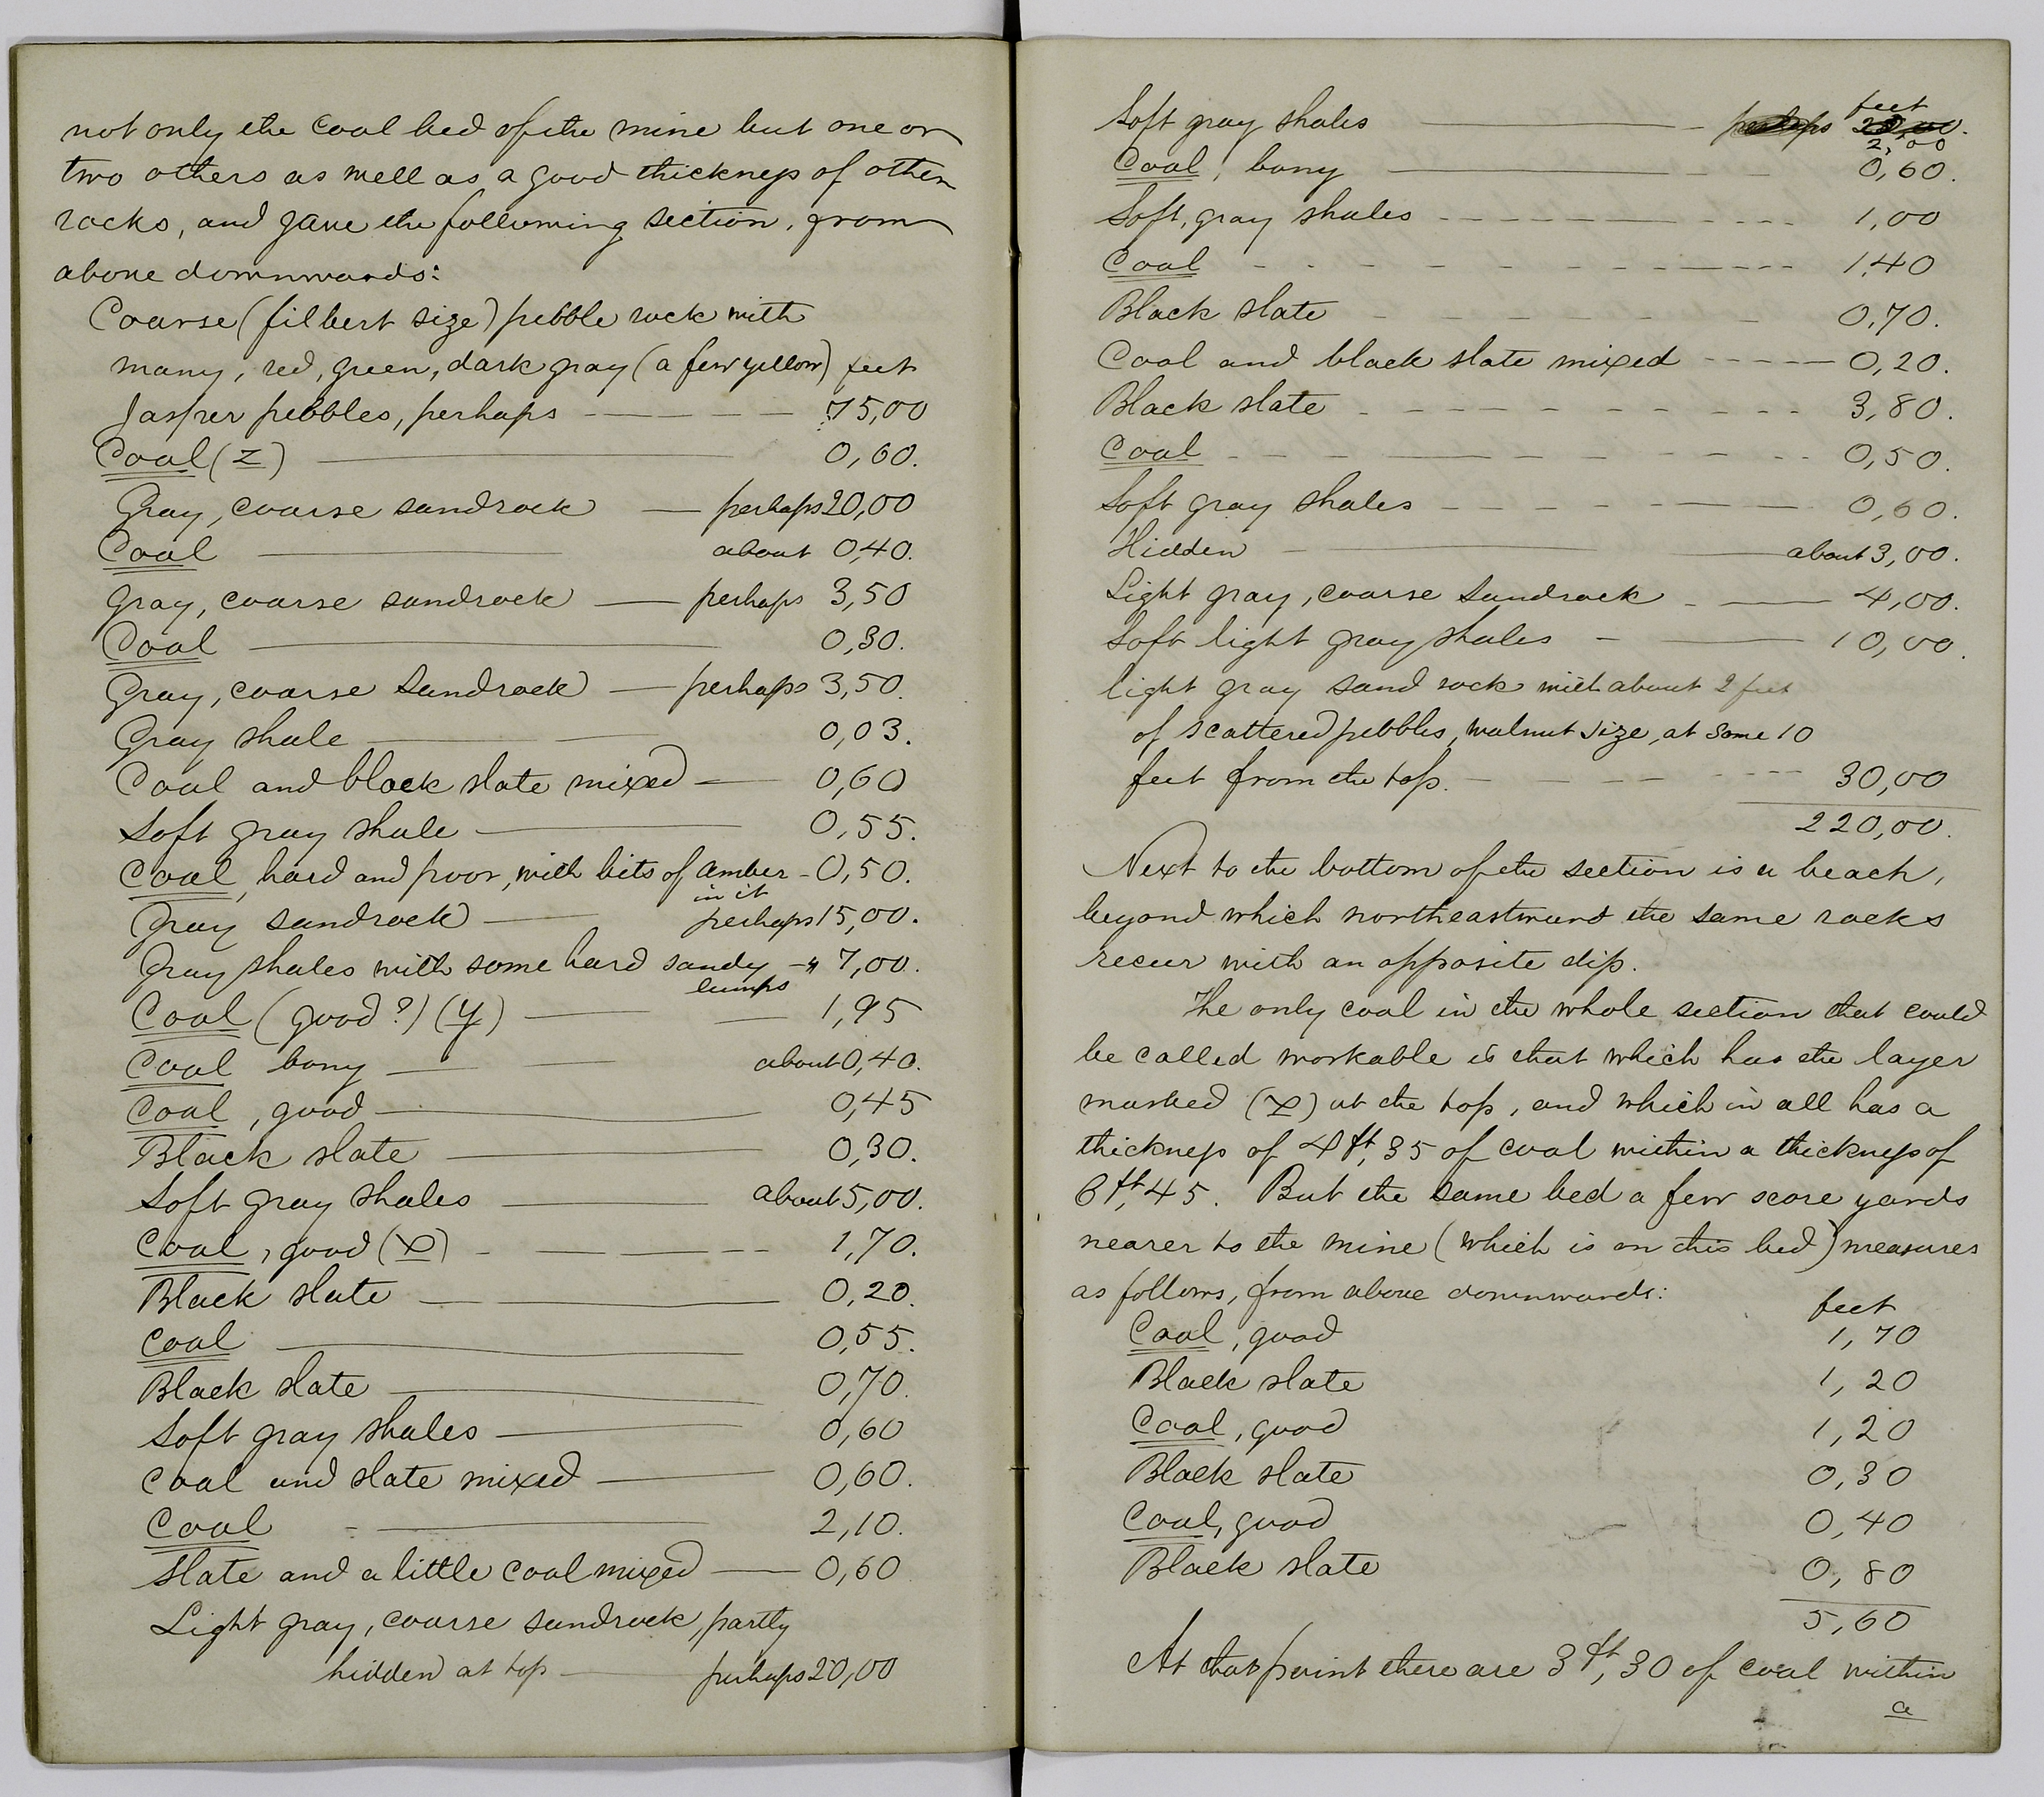 not only the coal bed of the mine but one or
two others as well as a good thickness of other
rocks, and gave the following section, from
above downwards:
Coarse (filbert size) pebble rock with
many, red, green, dark gray (a few yellow) feet
Jasper pebbles, perhaps — — — — 75,00
Coal (Z) — 0,60.
Gray, coarse sandrock — perhaps 20,00
Coal — about 0,40.
Gray, coarse sandrock — perhaps 3,50
Coal — 0,30.
Gray, coarse sandrock — perhaps 3,50.
Gray shale — 0,03.
Coal and black slate mixed — 0,60
Soft gray shale — 0,55.
Coal, hard and poor, with bits of amber - 0,50.
in it
Gray sandrock — perhaps 15,00.
Gray shales with some hard sandy — " 7,00.
lumps
Coal (good?) (y) — 1,95
Coal bony — about 0,40.
Coal, good — 0,45
Black slate — 0,30.
Soft gray shales — about 5,00.
Coal, good (x) - — — — - - 1,70.
Black slate — 0,20.
Coal — 0,55.
Black slate — 0,70.
Soft gray shales — 0,60
Coal and slate mixed — 0,60.
Coal - — 2,10.
Slate and a little coal mixed — 0,60
Light gray, coarse sandrock, partly
hidden at top — perhaps 20,00
feet
Soft gray shales — perhaps
2,00
Coal, bony — 0,60.
Soft, gray shales - - - — - - - 1,00
Coal - - - - - - — - - - 1,40
Black slate - - - - - - 0,70.
Coal and black slate mixed - - - — 0,20.
Black slate - - - - - - - - - 3,80.
Coal - - - — - - - 0,50.
Soft gray shales - - - - — 0,60.
Hidden — about 3,00.
Light gray, coarse sandrock - — 4,00.
Soft light gray shales - — 10,00.
light gray sand rock with about 2 feet
of scattered pebbles, walnut size, at some 10
feet from the top. - - - - - - 30,00
220,00.
Next to the bottom of the section is a beach,
beyond which northeastward the same rocks
recur with an opposite dip.
The only coal in the whole section that could
be called workable is that which has the layer
marked (x) at the top, and which in all has a
thickness of 4ft,35 of coal within a thickness of
6ft,45. But the same bed a few score yards
nearer to the mine (which is on this bed) measures
as follows, from above downwards:
feet
Coal, good 1,70
Black slate 1,20
Coal, good 1,20
Black slate 0,30
Coal, good 0,40
Black slate 0,80
5,60
At that point there are 3ft,30 of coal within
a